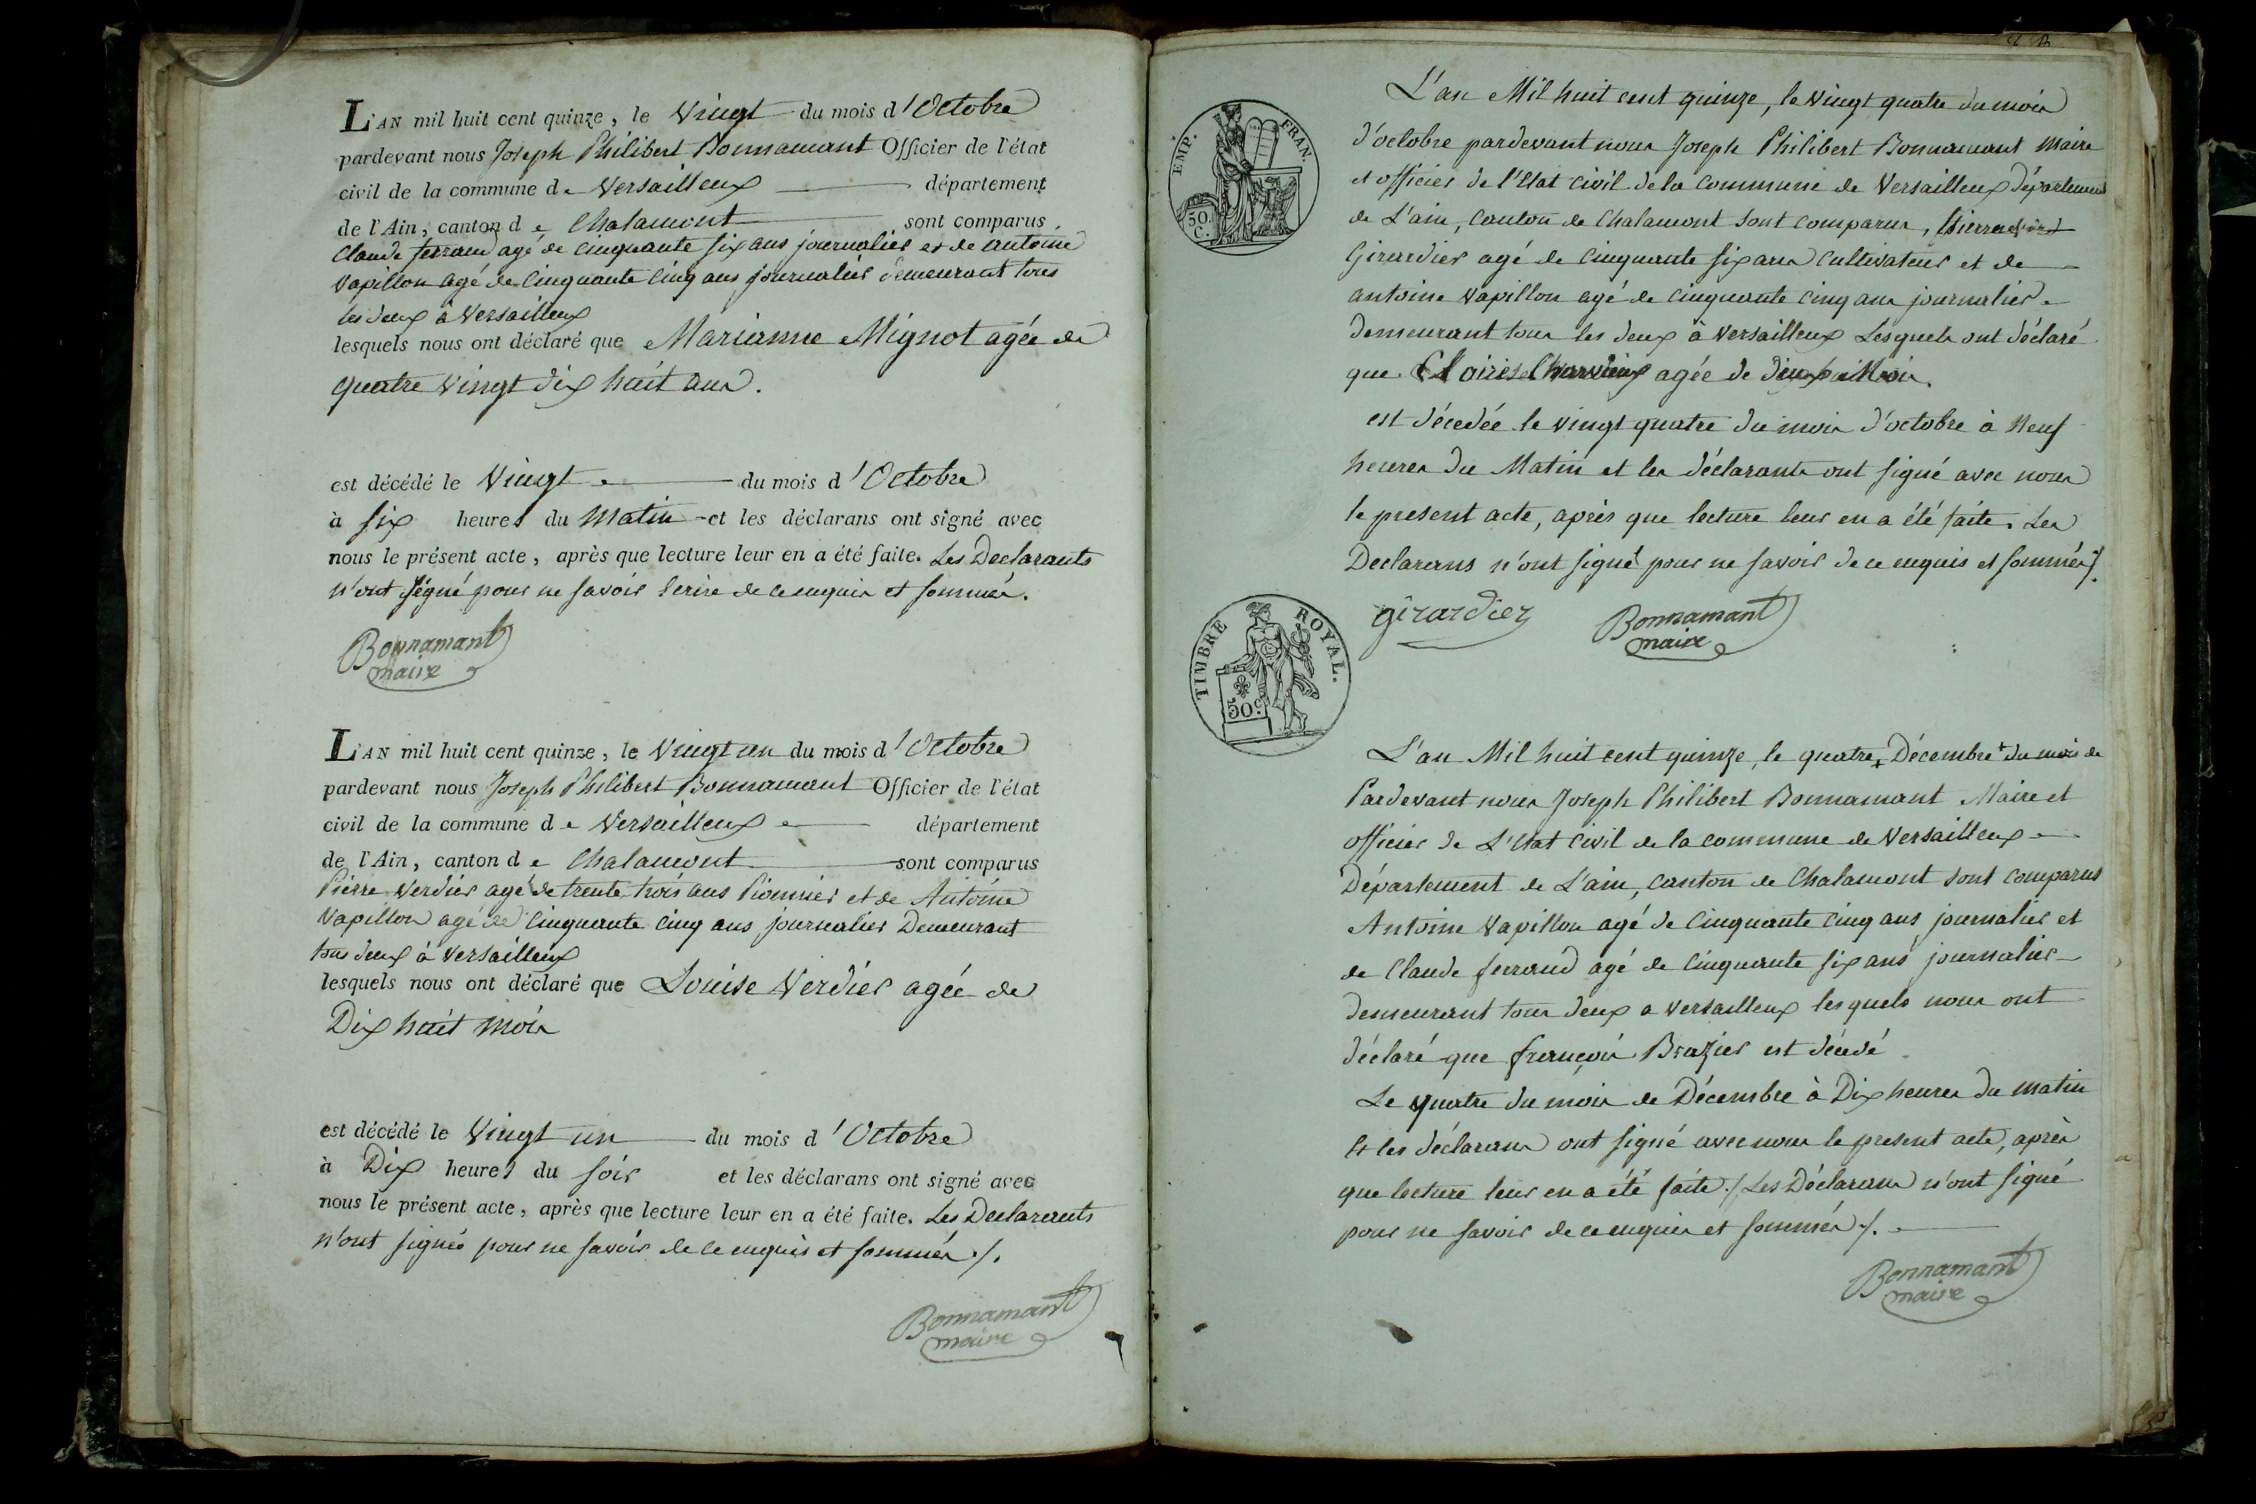 L'AN mil huit cent quinze, le Vingt du mois d'Octobre
pardevant nous Joseph Philibert Bonnamant Officier de l'état
civil de la commune de Versailleux département
de l'Ain, canton de Chalamont sont comparus
Claude ferrand agé de cinquante six ans journalier et de antoine
Vapillon agé de Cinquante Cinq ans journalier demeurant tous
les deux à Versailleux
lesquels nous ont déclaré que Marianne Mignot agée de
quatre Vingt dix huit ans.
est décédé le Vingt du mois d'Octobre
à six heures du Matin et les déclarans ont signé avec
nous le présent acte, après que lecture leur en a été faite. Les Declarants
n'ont signé pour ne savoir Ecrire de ce enquis et sommés.
Bonnamant
maire
L'AN mil huit cent quinze, le Vingt un du mois d'Octobre
pardevant nous Joseph Philibert Bonnamant Officier de l'état
civil de la commune de Versailleux département
de l'Ain, canton de Chalamont sont comparus
Pierre Verdier agé de trente trois ans Pionnier et de Antoine
Vapillon agé de Cinquante cinq ans journalier Demeurant
tous deux à Versailleux
lesquels nous ont déclaré que Louise Verdier agée de
Dix huit mois
est décédé le Vingt un du mois d'Octobre
à Dix heures du soir et les déclarans ont signé avec
nous le présent acte, après que lecture leur en a été faite. Les Declarants
n'ont signés pour ne savoir de ce enquis et sommés /.
Bonnamant
maire
EMP. FRAN.
50. C.
L'an Mil huit cent quinze, le Vingt quatre du mois
d'octobre pardevant nous Joseph Philibert Bonnamant Maire
et officier de l'Etat Civil de la Commune de Versailleux Département
de L'ain, Canton de Chalamont sont comparus, Pierre
Girardier agé de Cinquante six ans Cultivateur et de
antoine Vapillon agé de cinquante cinq ans journalier
demeurant tous les deux à Versailleux Lesquels ont déclaré
que agée de
est décedée le vingt quatre du mois d'octobre à Neuf
heures du Matin et les déclarants ont signé avec nous
le present acte, après que lecture leur en a été faite. Les
Declarans n'ont signé pour ne savoir de ce enquis et sommés /.
girardier Bonnamant
maire
TIMBRE ROYAL.
50 c.
L'an Mil huit cent quinze, le quatre Décembre du mois de
Pardevant nous Joseph Philibert Bonnamant Maire et
officier de L'Etat Civil de la commune de Versailleux
Département de L'ain, canton de Chalamont sont comparus
Antoine Vapillon agé de Cinquante cinq ans journalier et
de Claude ferrand agé de Cinquante six ans journalier
demeurant tous deux a Versailleux lesquels nous ont
déclaré que françois Brazier est décédé
Le quatre du mois de Décembre à Dix heures du matin
Et les déclarans ont signé avec nous le present acte, après
que lecture leur en a été faite ./ Les Déclarans n'ont signé
pour ne savoir de ce enquis et sommés /.
Bonnamant
maire